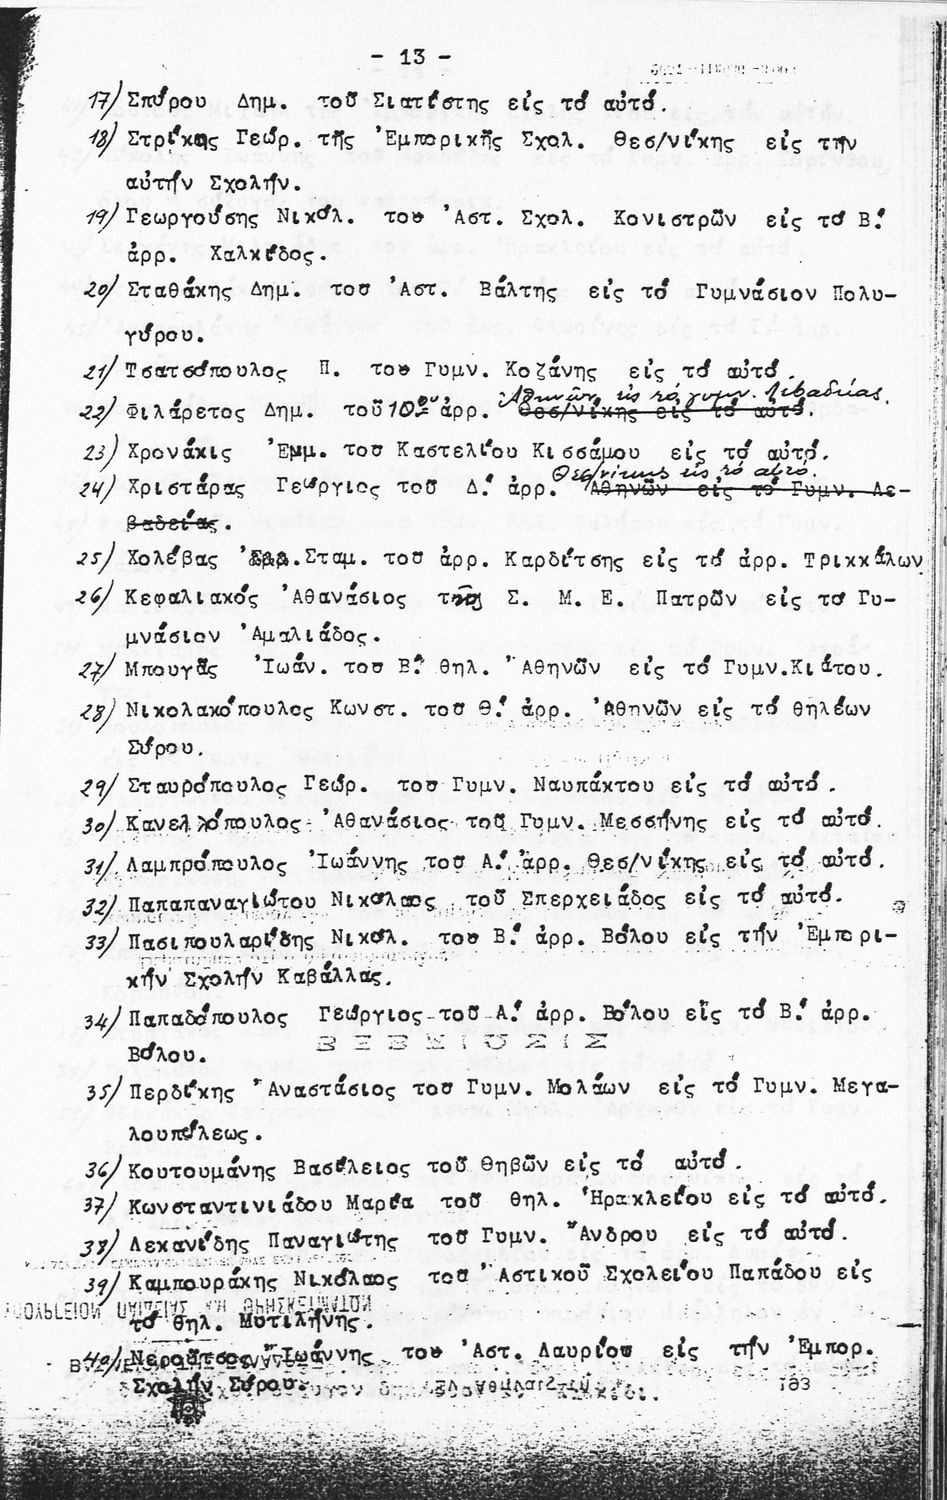 - 13 -
17) Σπύρου Δημ. τοῦ Σιατίστης εἰς τό αὐτό.
18) Στρίκος Γεώρ. τῆς Ἐμπορικῆς Σχολ. Θεσ/νίκης εἰς τήν
αὐτήν Σχολήν.
19) Γεωργούσης Νικόλ. του Ἀστ. Σχολ. Κονιστρῶν εἰς τό Β.'
ἀρρ. Χαλκίδος.
20) Σταθάκης Δημ. του Ἀστ. Βάλτης εἰς τό Γυμνάσιον Πολυ-
γύρου.
21) Τσατσόπουλος Π. του Γυμν. Κοζάνης εἰς τό αὐτό.
Ἀθηνῶν εἰς τό γυμν. Λεβαδείας.
22) Φιλάρετος Δημ. τοῦ 10ου ἀρρ. Θεσ/νίκης εἰς τό αὐτό.
23) Χρονάκις Ἐμμ. του Καστελίου Κισσάμου εἰς τό αὐτό.
Θεσ/νίκης εἰς τό αὐτό.
24) Χριστάρας Γεώργιος τοῦ Δ.' ἀρρ. Ἀθηνῶν εἰς τό Γυμν. Λε-
βαδείας.
25) Χολέβας Σταμ. του ἀρρ. Καρδίτσης εἰς τό ἀρρ. Τρικκάλων
26) Κεφαλιακός Ἀθανάσιος τῆς Σ. Μ. Ε. Πατρῶν εἰς το Γυ-
μνάσιον Ἀμαλιάδος.
27) Μπουγᾶς Ἰωάν. του Β.' θηλ. Ἀθηνῶν εἰς τό Γυμν.Κιάτου.
28) Νικολακόπουλος Κωνστ. του Θ.' ἀρρ. Ἀθηνῶν εἰς τό θηλέων
Σύρου.
29) Σταυρόπουλος Γεώρ. του Γυμν. Ναυπάκτου εἰς τό αὐτό.
30) Κανελλόπουλος Ἀθανάσιος τοῦ Γυμν. Μεσσήνης εἰς τό αὐτό.
31) Λαμπρόπουλος Ἰωάννης τοῦ Α.' ἀρρ. Θεσ/νίκης εἰς τό αὐτό.
32) Παπαπαναγιώτου Νικόλαος τοῦ Σπερχειάδος εἰς τό αὐτό.
33) Πασιπουλαρίδης Νικόλ. του Β.' ἀρρ. Βόλου εἰς τήν Ἐμπορι-
κήν Σχολήν Καβάλλας.
34) Παπαδόπουλος Γεώργιος τοῦ Α.' ἀρρ. Βόλου εἰς τό Β.' ἀρρ.
Βόλου.
35) Περδίκης Ἀναστάσιος του Γυμν. Μολάων εἰς τό Γυμν. Μεγα-
λουπόλεως.
36) Κουτουμάνης Βασίλειος τοῦ Θηβῶν εἰς τό αὐτό.
37) Κωνσταντινιάδου Μαρία τοῦ θηλ. Ἡρακλείου εἰς τό αὐτό.
38) Λεκανίδης Παναγιώτης τοῦ Γυμν. Ἄνδρου εἰς τό αὐτό.
39) Καμπουράκης Νικόλαος του Ἀστικοῦ Σχολείου Παπάδου εἰς
τό θηλ. Μυτιλήνης.
40) Νεροῦτσος Ἰωάννης του Ἀστ. Λαυρίου εἰς τήν Ἐμπορ.
Σχολήν Σύρου.